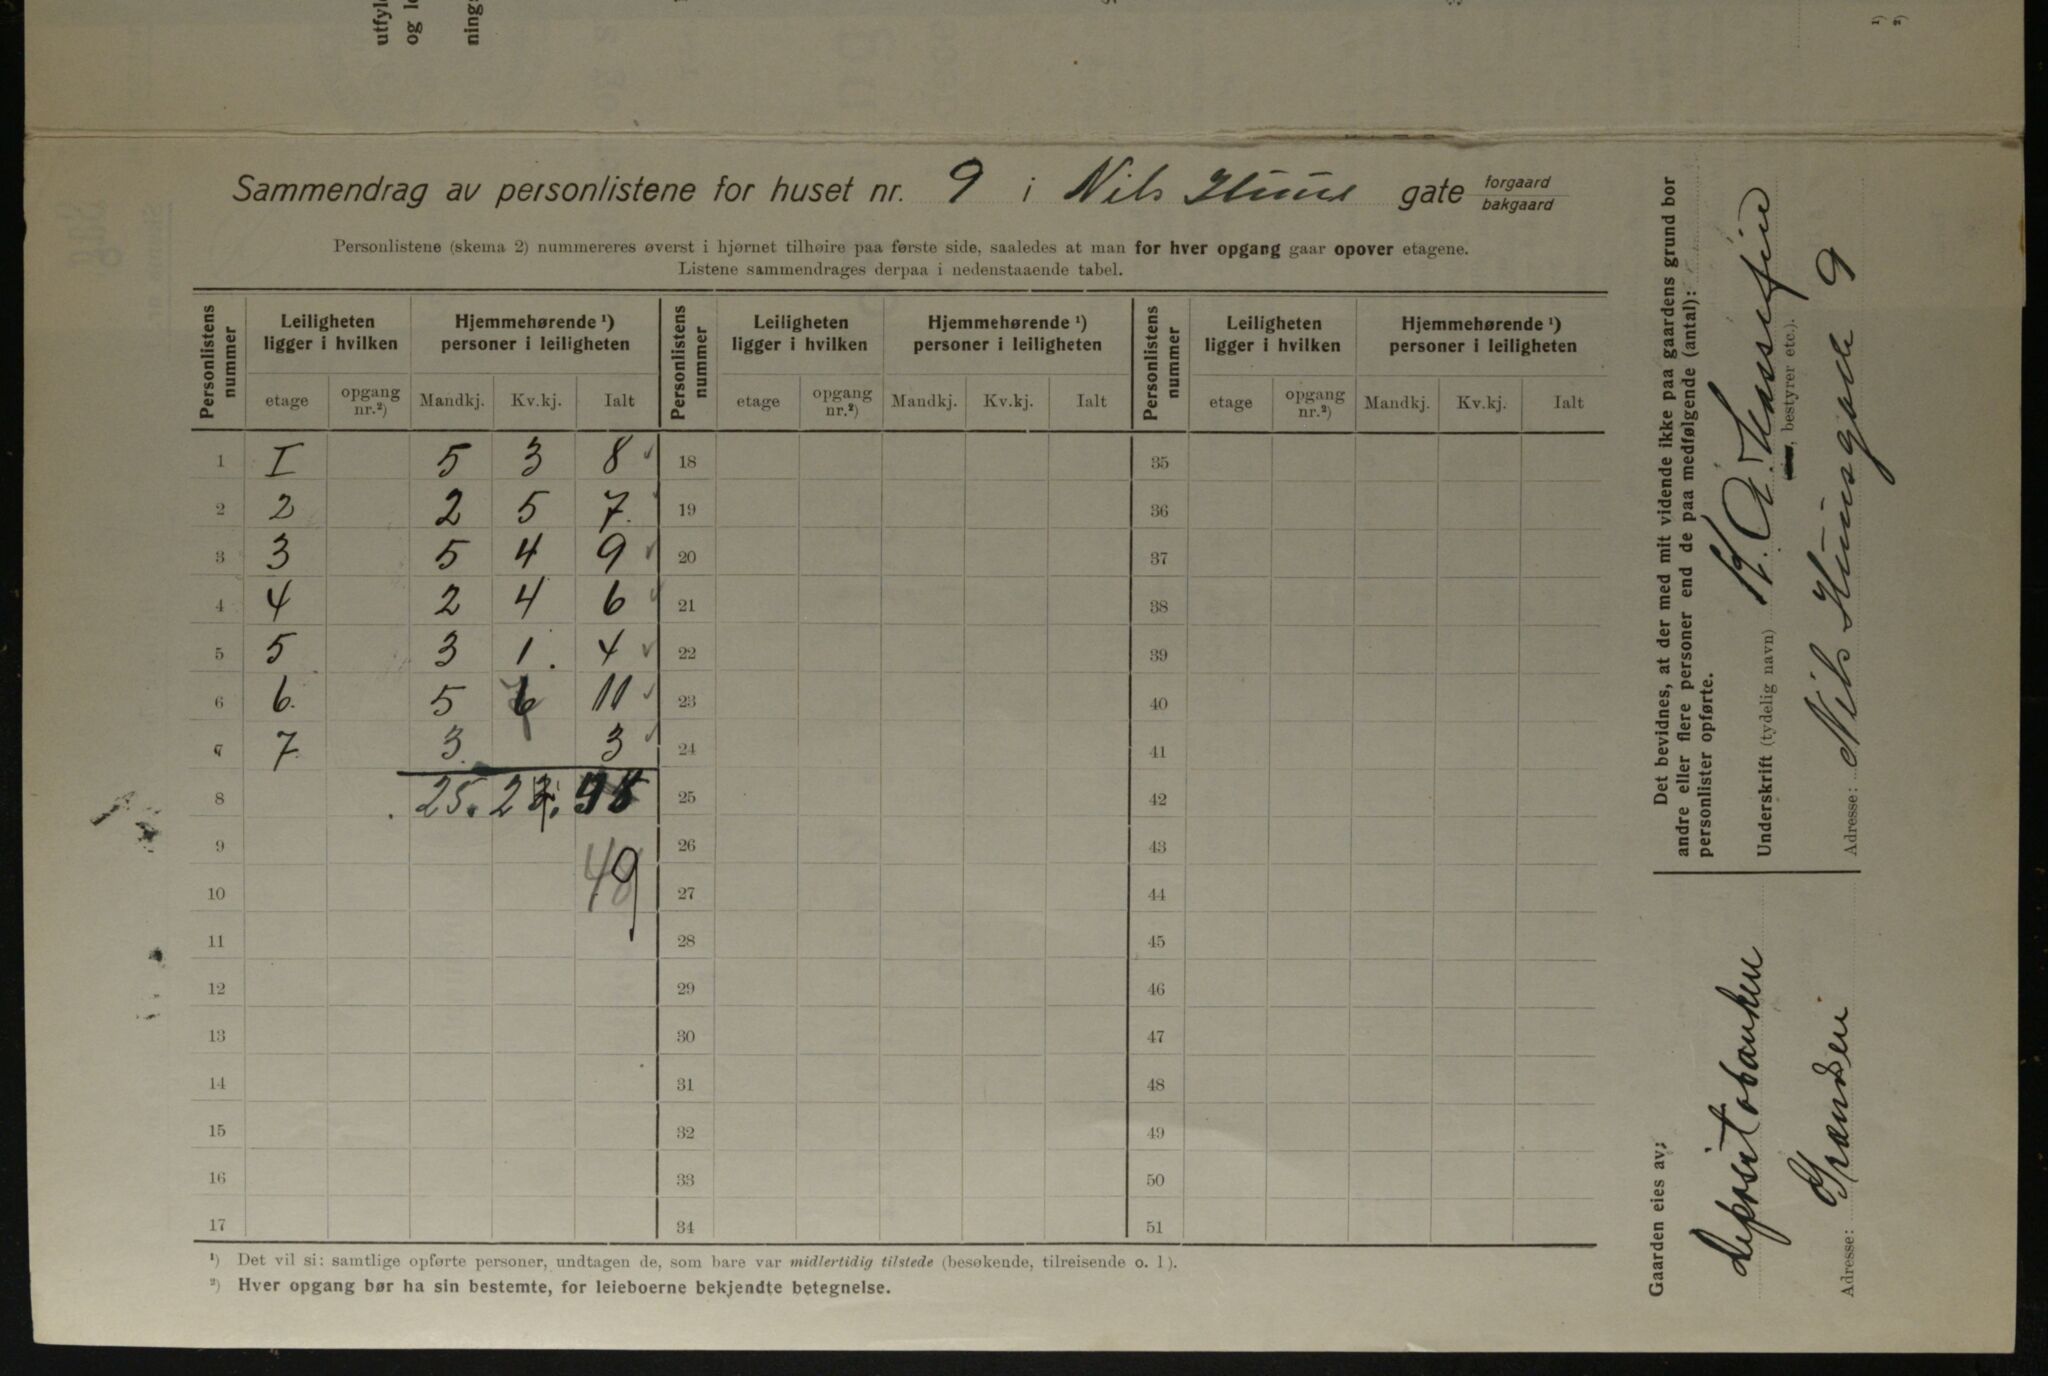 utfyl
og l
ning
¹)
²)
Sammendrag av personlistene for huset nr. 9 i Nils Huus gate forgaard
bakgaard
Personlistene (skema 2) nummereres øverst i hjørnet tilhøire paa første side, saaledes at man for hver opgang gaar opover etagene.
Listene sammendrages derpaa i nedenstaaende tabel.
Personlistens nummer | Leiligheten ligger i hvilken | Hjemmehørende ¹) personer i leiligheten | Personlistens nummer | Leiligheten ligger i hvilken | Hjemmehørende ¹) personer i leiligheten | Personlistens nummer | Leiligheten ligger i hvilken | Hjemmehørende ¹) personer i leiligheten
etage | opgang nr.²) | Mandkj. | Kv.kj. | Ialt | etage | opgang nr.²) | Mandkj. | Kv.kj. | Ialt | etage | opgang nr.²) | Mandkj. | Kv.kj. | Ialt
1 I 5 3 8 18 35
2 2 2 5 7 19 36
3 3 5 4 9 20 37
4 4 2 4 6 21 38
5 5 3 1. 4 22 39
6 6. 5 6 11 23 40
7 7. 3 3 24 41
8 25. 25 42
9 26 43
10 49 27 44
11 28 45
12 29 46
13 30 47
14 31 48
15 32 49
16 33 50
17 34 51
¹) Det vil si: samtlige opførte personer, undtagen de, som bare var midlertidig tilstede (besøkende, tilreisende o. l).
²) Hver opgang bør ha sin bestemte, for leieboerne bekjendte betegnelse.
Det bevidnes, at der med mit vidende ikke paa gaardens grund bor
andre eller flere personer end de paa medfølgende (antal):
personlister opførte.
Underskrift (tydelig navn)
, bestyrer etc.).
Adresse: Nils Huusgade 9
Gaarden eies av:
Depositobanken
Adresse: Granden